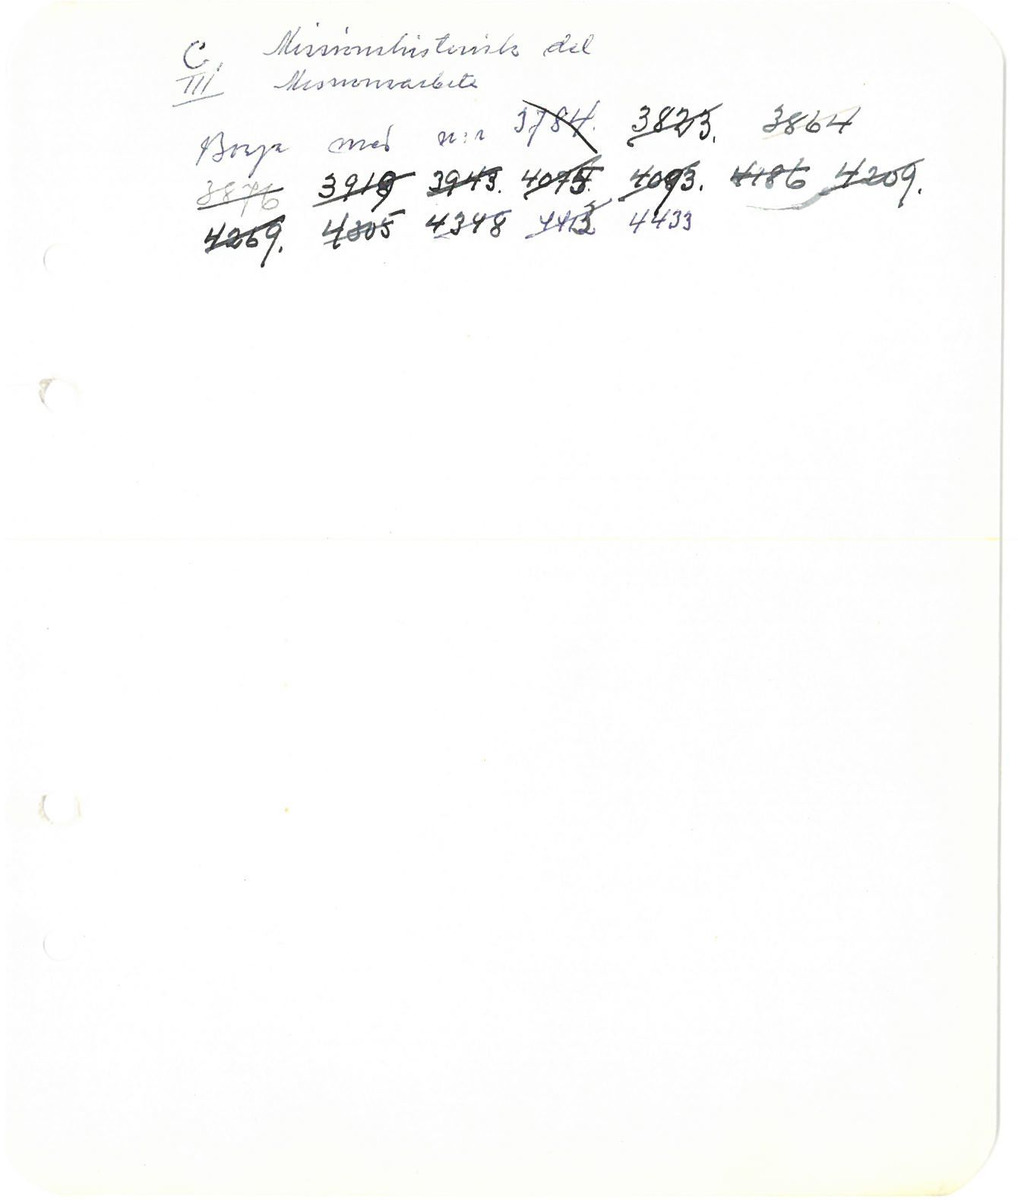 C. Missionshistorisk del
III Missionsarbete
Börja med n:r 3784. 3823. 3864
3876 3919 3943. 4075. 4093. 4186 4209.
4269. 4305 4348 4413 4433